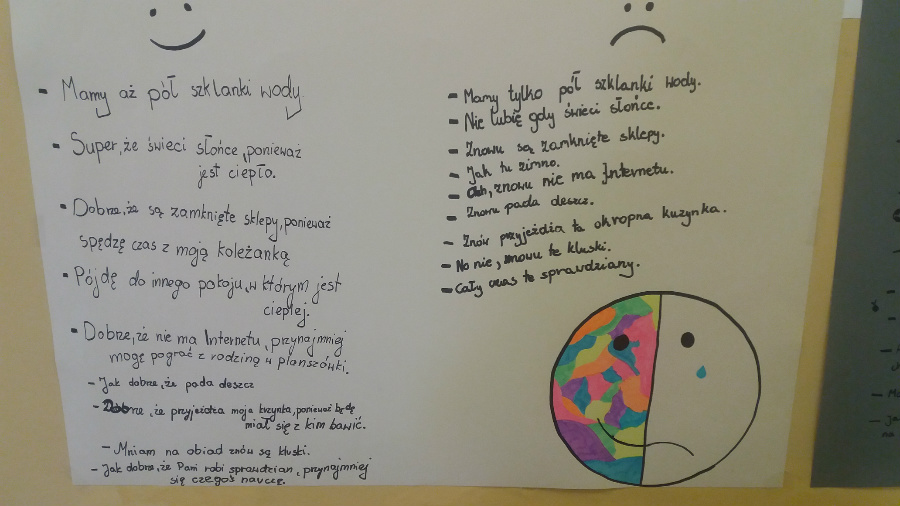 - Mamy aż pół szklanki wody
- Super, że świeci słońce, ponieważ
jest ciepło.
- Dobrze, że są zamknięte sklepy, ponieważ
spędzę czas z moją koleżanką
- Pójdę do innego pokoju, w którym jest
cieplej.
- Dobrze, że nie ma Internetu, przynajmniej
mogę pograć z rodziną w planszówki.
- Jak dobrze, że pada deszcz
- Dobrze, że przyjeżdża moja kuzynka, ponieważ będę
miał się z kim bawić.
- Mniam na obiad znów są kluski.
- Jak dobrze, że Pani robi sprawdzian, przynajmniej
się czegoś nauczę.
- Mamy tylko pół szklanki wody.
- Nie lubię gdy świeci słońce.
- Znowu są zamknięte sklepy.
- Jak tu zimno.
- Ohh, znowu nie ma Internetu.
- Znowu pada deszcz.
- Znów przyjeżdża ta okropna kuzynka.
- No nie, znowu te kluski.
- Cały czas te sprawdziany.